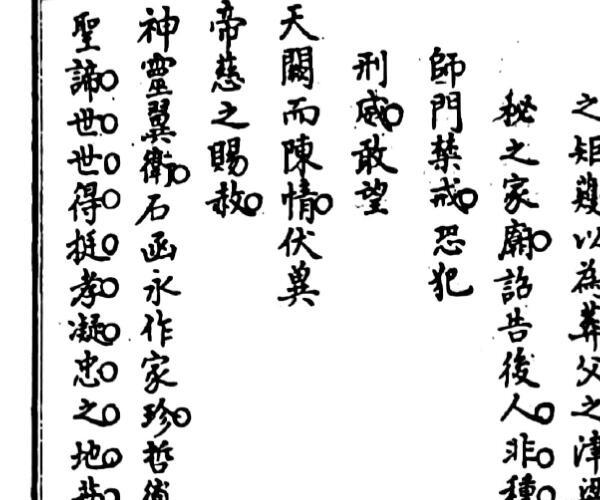 之矩蒦以為葬父之津梁
秘之家廟詔告後人非種
師門禁戒恐犯
刑威敢望
天闕而陳情伏兾
帝慈之賜赦
神靈翼衛石函永作家珍哲
聖諦世世得挺孝凝忠之地